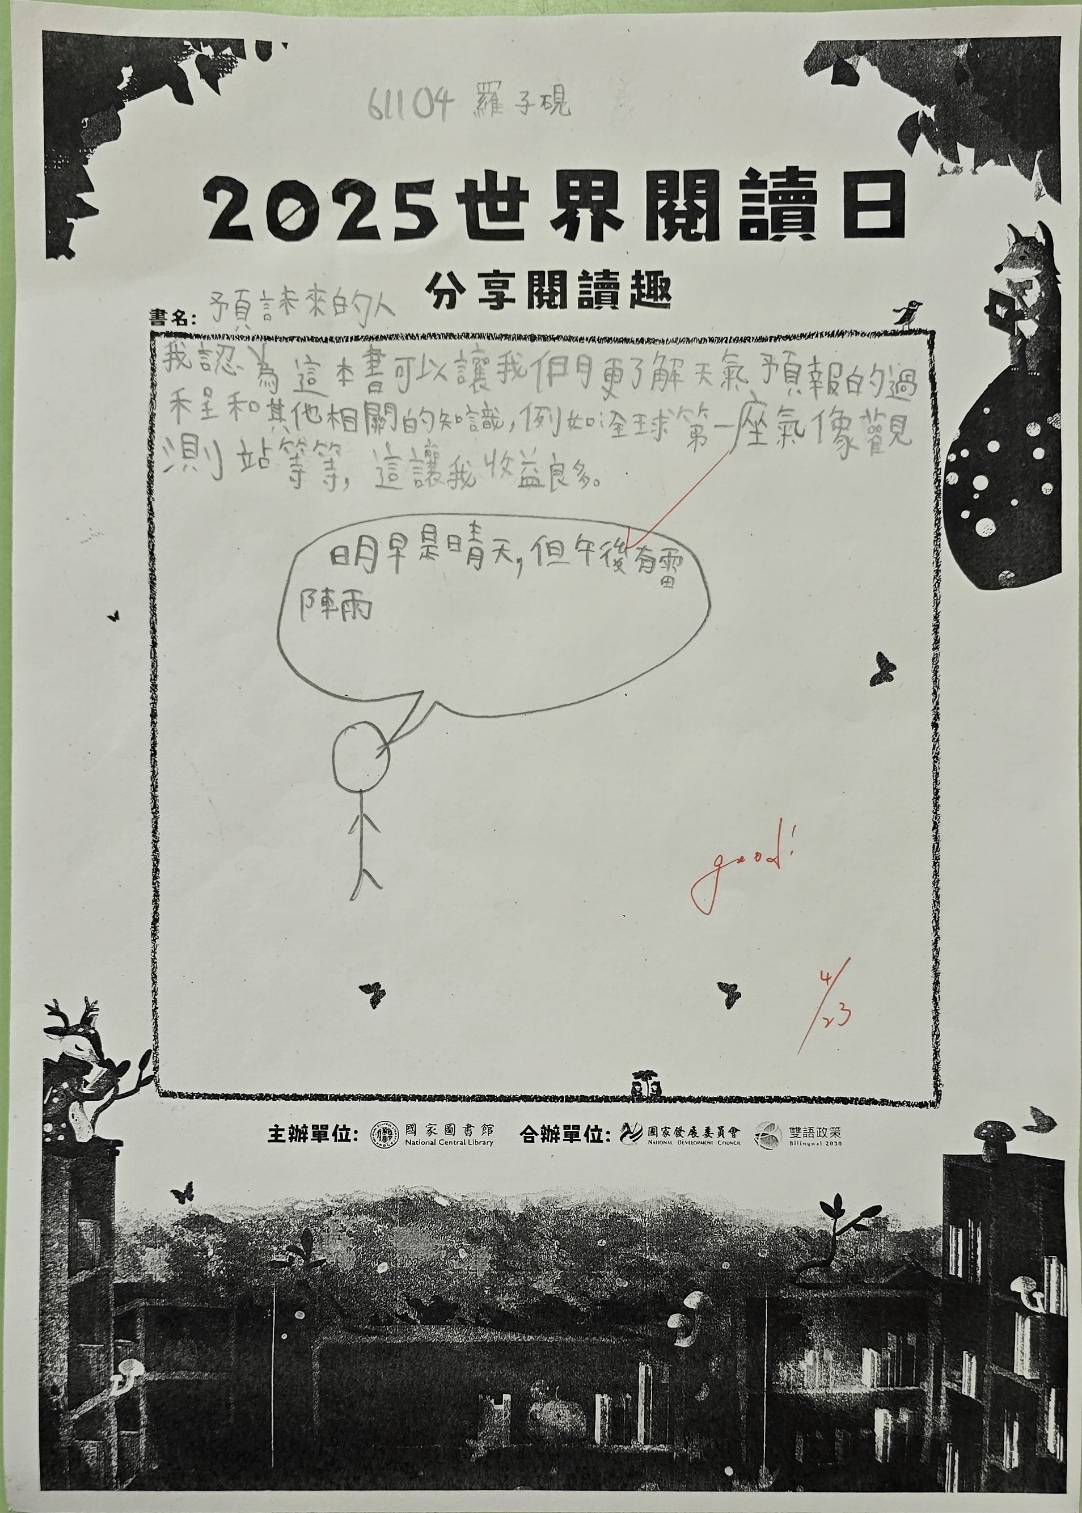 61104 羅子硯
2025世界閱讀日
分享閱讀趣
書名: 預言未來的人
我認為這本書可以讓我們更了解天氣預報的過
程和其他相關的知識,例如全球第一座氣像觀
測站等等,這讓我收益良多。
明早是晴天,但午後有雷
陣雨
good!
4/23
主辦單位: 國家圖書館 合辦單位: 國家發展委員會 雙語政策
National Central Library National Development Council Bilingual 2030